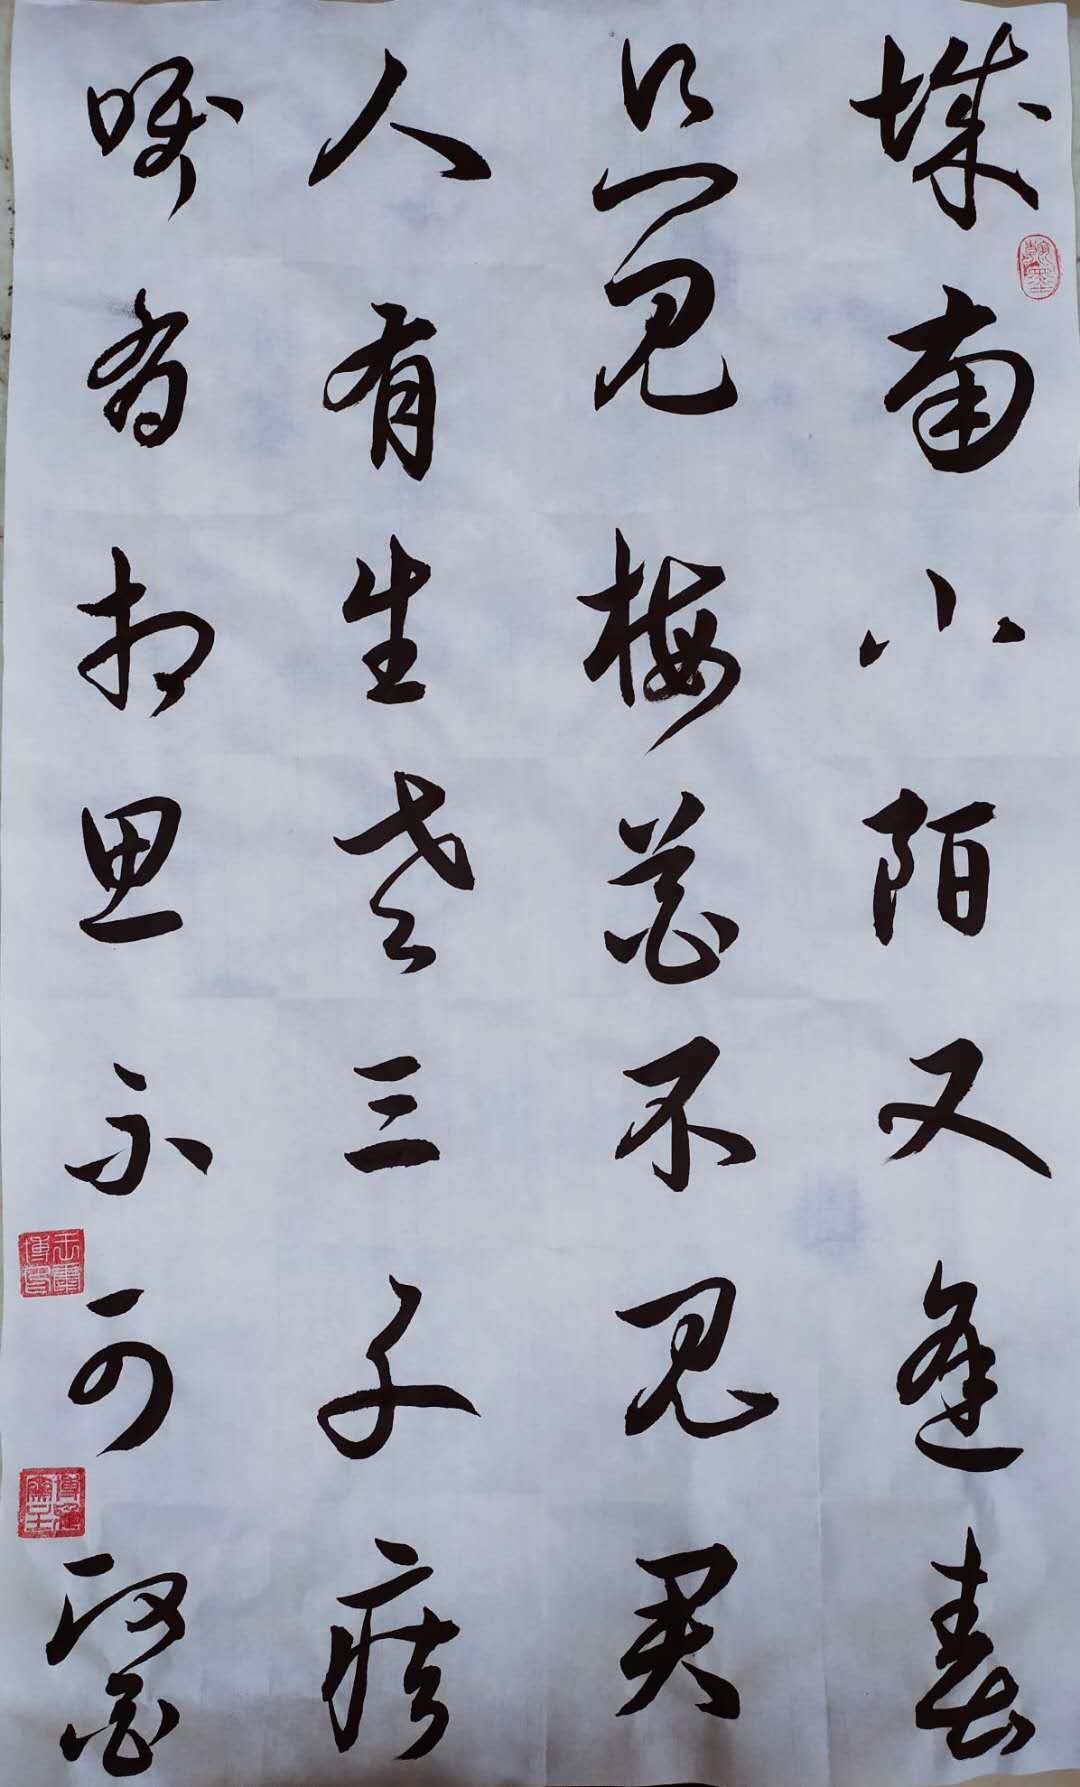 城南小陌又逢春
只见梅花不见人
人有生老三千疾
唯有相思不可医
翰墨